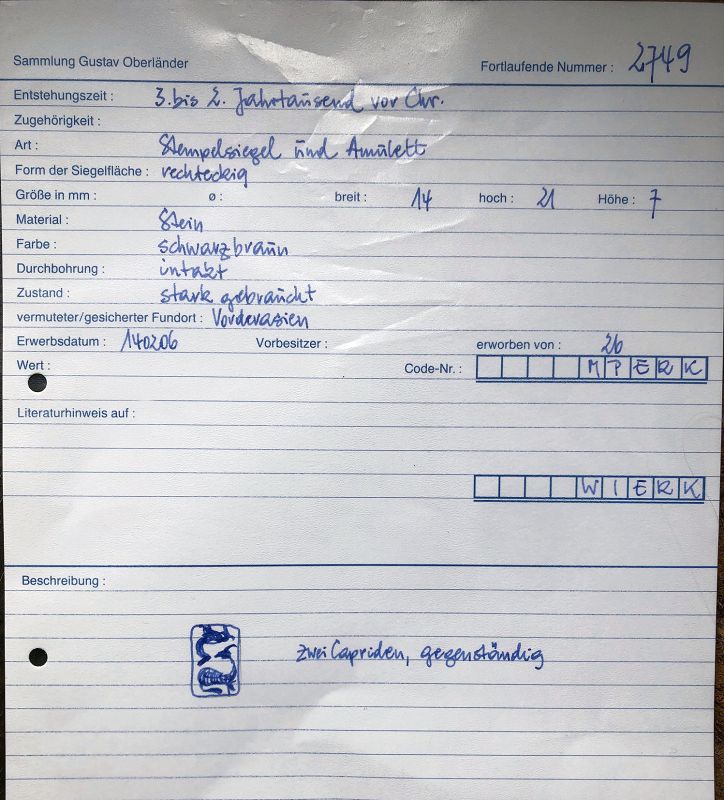 Sammlung Gustav Oberländer Fortlaufende Nummer : 2749
Entstehungszeit : 3. bis 2. Jahrtausend vor Chr.
Zugehörigkeit :
Art : Stempelsiegel und Amulett
Form der Siegelfläche : rechteckig
Größe in mm : ø : breit : 14 hoch : 21 Höhe : 7
Material : Stein
Farbe : schwarzbraun
Durchbohrung : intakt
Zustand : stark gebraucht
vermuteter/gesicherter Fundort : Vorderasien
Erwerbsdatum : 140206 Vorbesitzer : erworben von : 26
Wert : Code-Nr. : MPERK
Literaturhinweis auf :
WIERK
Beschreibung :
zwei Capriden, gegenständig